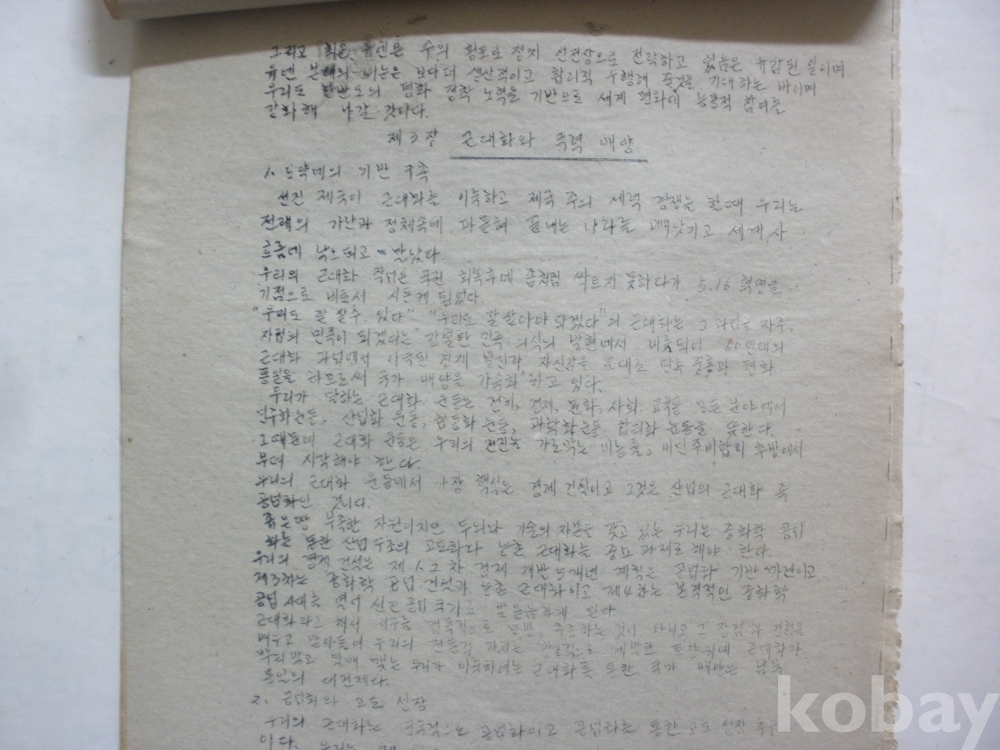 그리고 최근 유엔은 수의 횡포로 정치 선전장으로 전락하고 있음은 유감된 일이며
유엔 본래의 기능은 보다더 생산적이고 합리적 수행해 줄것을 기대하는 바이며
우리도 한반도의 평화 정착 노력을 기반으로 세계 평화에 능동적 참여를
강화해 나갈 것이다.
제3장 근대화와 국력 배양
1. 도약에의 기반 구축
선진 제국이 근대화를 이룩하고 제국 주의 세력 경쟁을 할때 우리는
전래의 가난과 정체속에 파묻혀 끝내는 나라를 빼앗기고 세계사
흐름에 낙오되고 말았다
우리의 근대화 작업은 국권 회복후에 좀처럼 싹트지 못하다가 5.16 혁명을
기점으로 비로서 시돈케 되었다.
"우리도 잘 살수 있다" "우리도 잘 살아야 되겠다"의 근대화는 그 자주,
민족이 되겠다는 강렬한 민족 의식의 발현에서 비롯되어 60년대의
근대화 과업에서 이룩된 경제 발전과 자신감을 토대로 민족 중흥과 평화
통일을 하므로써 국가 배양을 가속화 하고 있다.
우리가 말하는 근대화 운동은 정치, 경제, 문화, 사회 교육등 모든 분야에서
민주화운동, 산업화 운동, 협동화 운동, 과학화운동 합리화 운동을 뜻한다.
그 때문에 근대화 운동은 우리의 전진을 가로막는 비능률, 미신 추방에서
부터 시작해야 한다.
우리의 근대화 운동에서 가장 핵심은 경제 건설이고 그것은 산업의 근대화 즉
공업화인 것이다.
좁은땅 부족한 자원이지만 두뇌와 기술의 자본을 갖고 있는 우리는 중화학 공업
화를 통한 산업 구조의 고도화다 농촌 근대화를 중요 과제로 해야 한다.
우리의 경제 건설은 제1.2차 경제 개발 5개년 계획은 공업화 기반 마련이고
제3차는 중화학 공업 건설과 농촌 근대화이고 제4차는 본격적인 중화학
공업 시대를 열어 신흥 공업 국가로 발돋음하게 된다.
근대화라고 해서 서구를 맹목적으로 모방, 추종하는 것이 아니고 그 장점과 경험을
배우고 받아들여 우리의 전통적 가치를 토착위에 근대화가
뿌리박고 열매 맺는 우리가 이룩하려는 근대화를 통한 국가 배양은 남북
통일의 대전제다.
2. 공업화와 고도 성장
우리의 근대화는 공업화이고 공업화는 통한 고도 성장
이다.
kobay